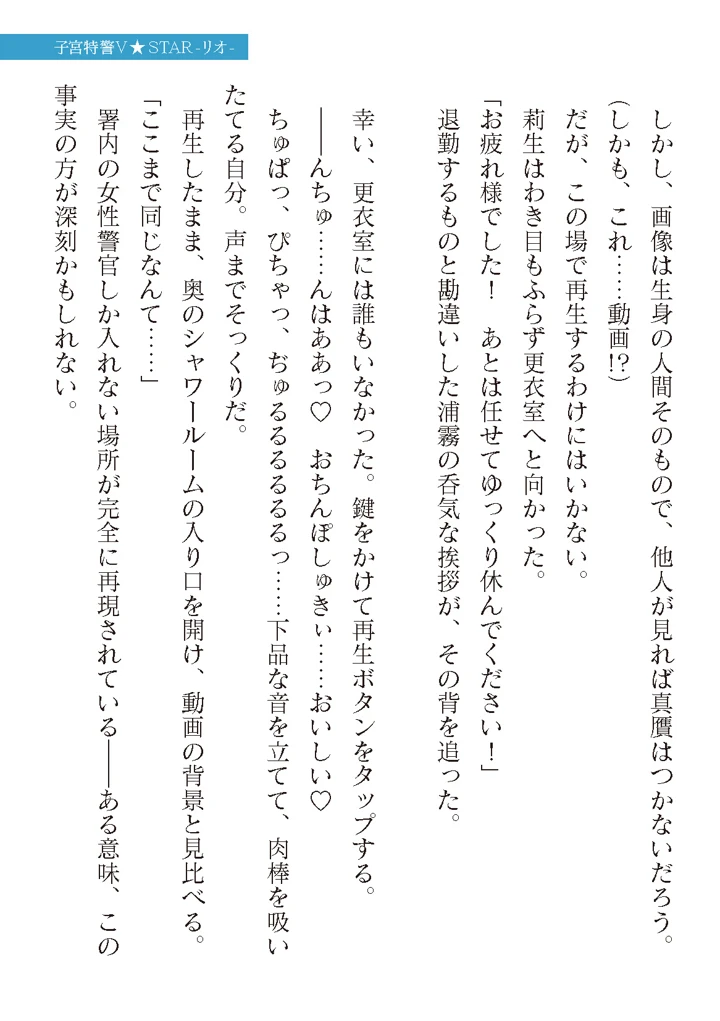 子宮特警V★STAR-リオ-
しかし、画像は生身の人間そのもので、他人が見れば真贋はつかないだろう。
(しかも、これ……動画!?)
だが、この場で再生するわけにはいかない。
莉生はわき目もふらず更衣室へと向かった。
「お疲れ様でした！　あとは任せてゆっくり休んでください！」
退勤するものと勘違いした浦霧の呑気な挨拶が、その背を追った。
幸い、更衣室には誰もいなかった。鍵をかけて再生ボタンをタップする。
――んちゅ……んはああっ♡　おちんぽしゅきぃ……おいしい♡
ちゅぱっ、ぴちゃっ、ぢゅるるるるるっ……下品な音を立てて、肉棒を吸い
たてる自分。声までそっくりだ。
再生したまま、奥のシャワールームの入り口を開け、動画の背景と見比べる。
「ここまで同じなんて……」
署内の女性警官しか入れない場所が完全に再現されている――ある意味、この
事実の方が深刻かもしれない。